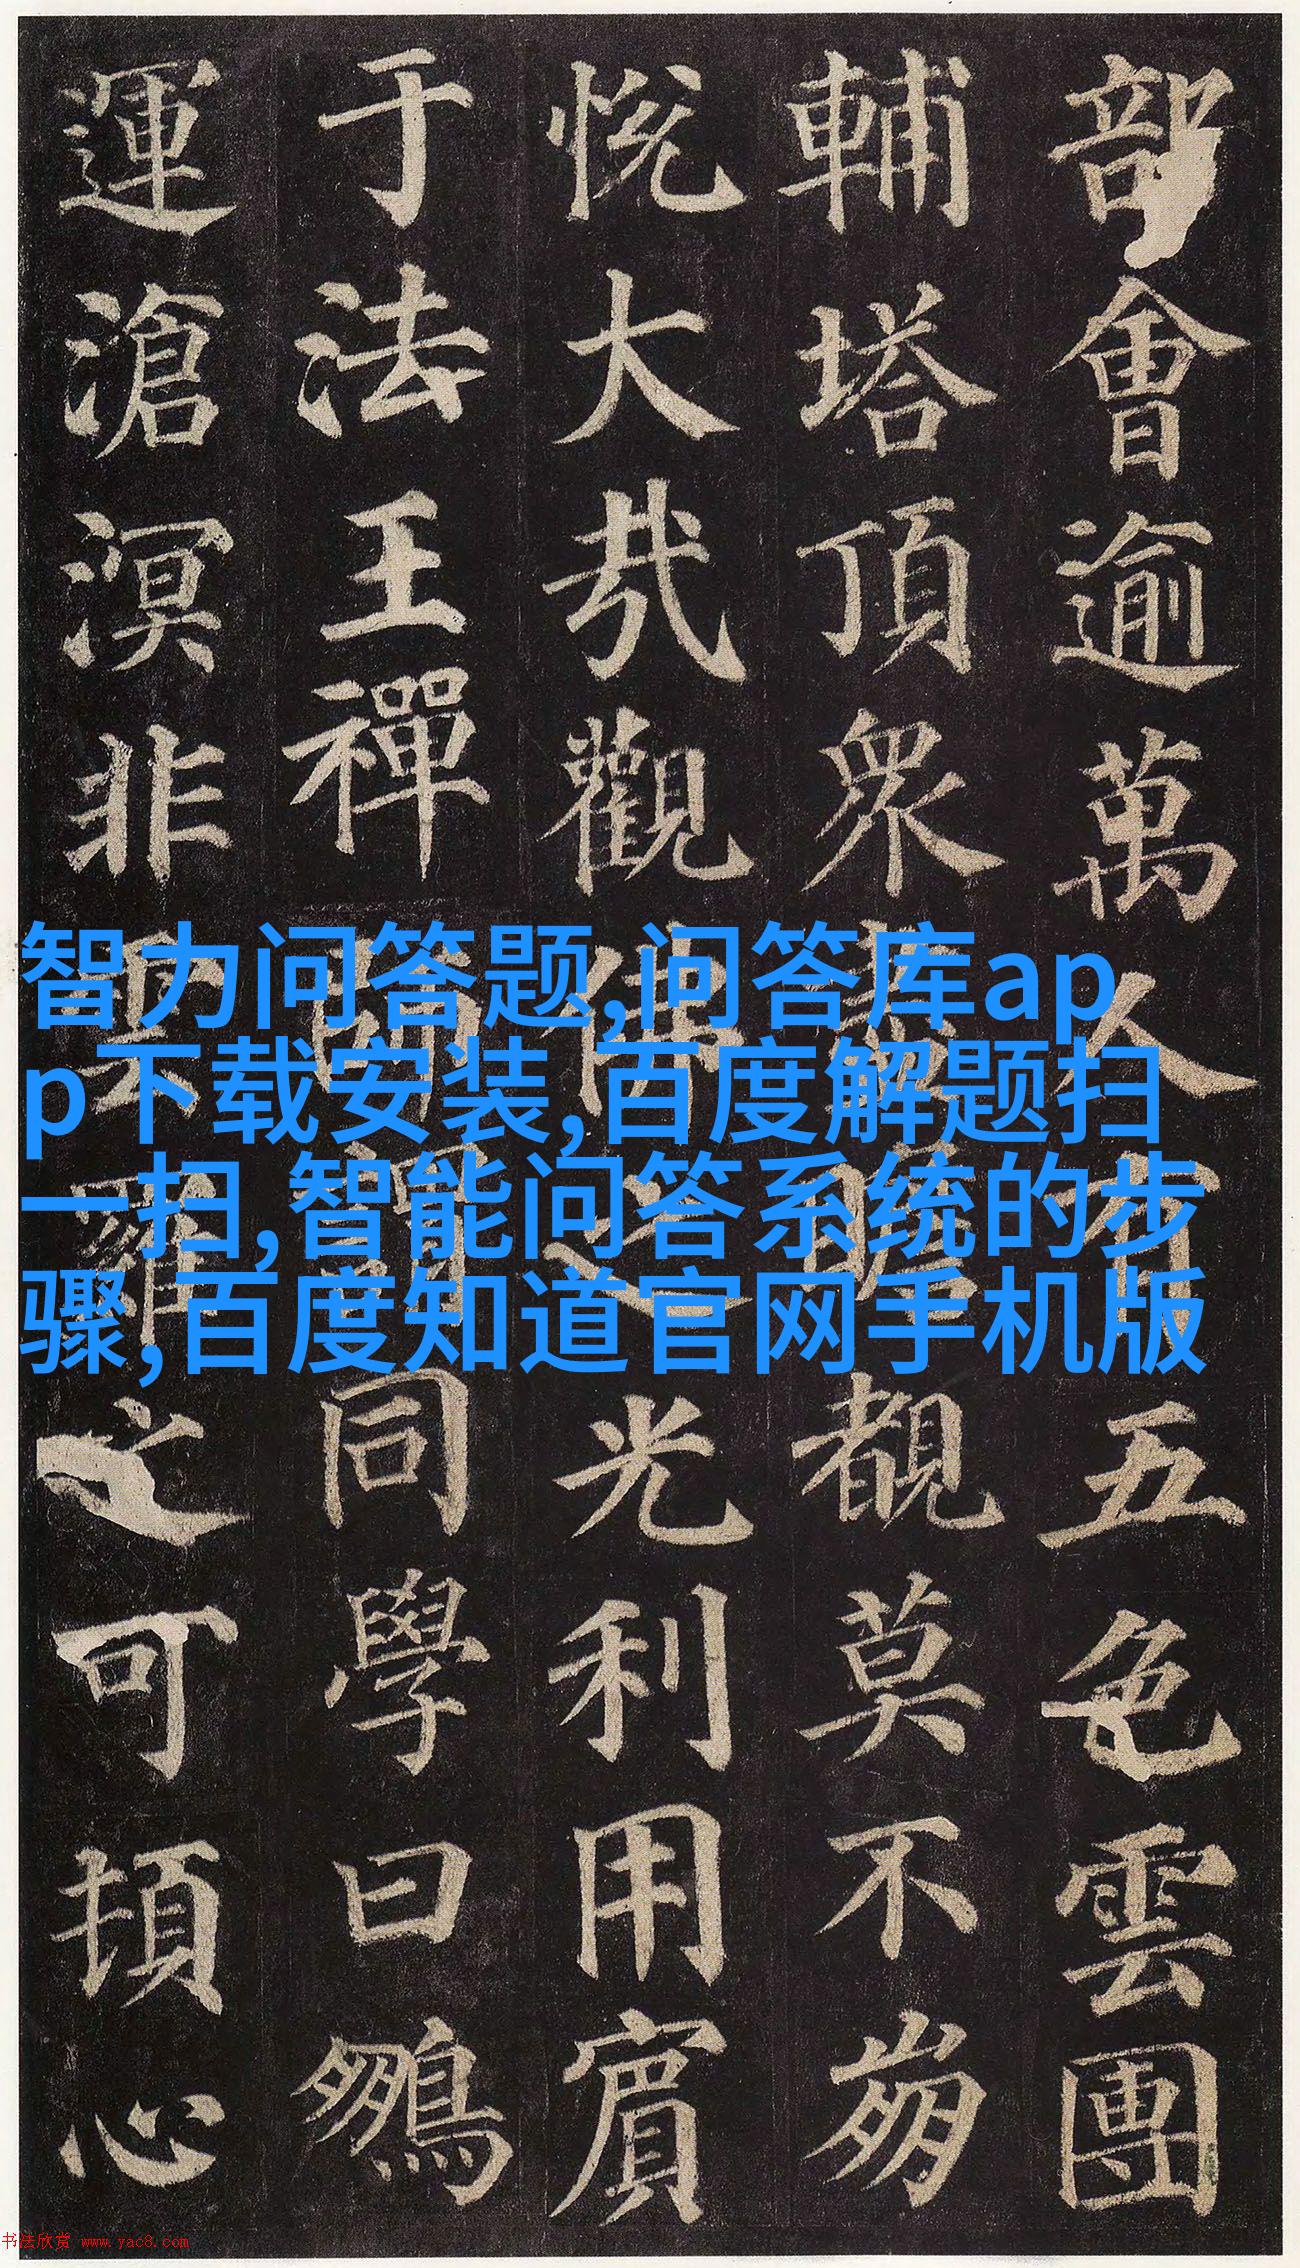 部會逾萬人有五色雲團
輔塔頂眾盡瞻覩莫不崩
悅大哉觀佛之光利用賓
于法王禪師謂同學曰鵬
運滄溟非雲羅之可頓心
智力问答题,问答库ap
p下载安装,百度解题扫
一扫,智能问答系统的步
骤,百度知道官网手机版
书法欣赏 www.yac8.com